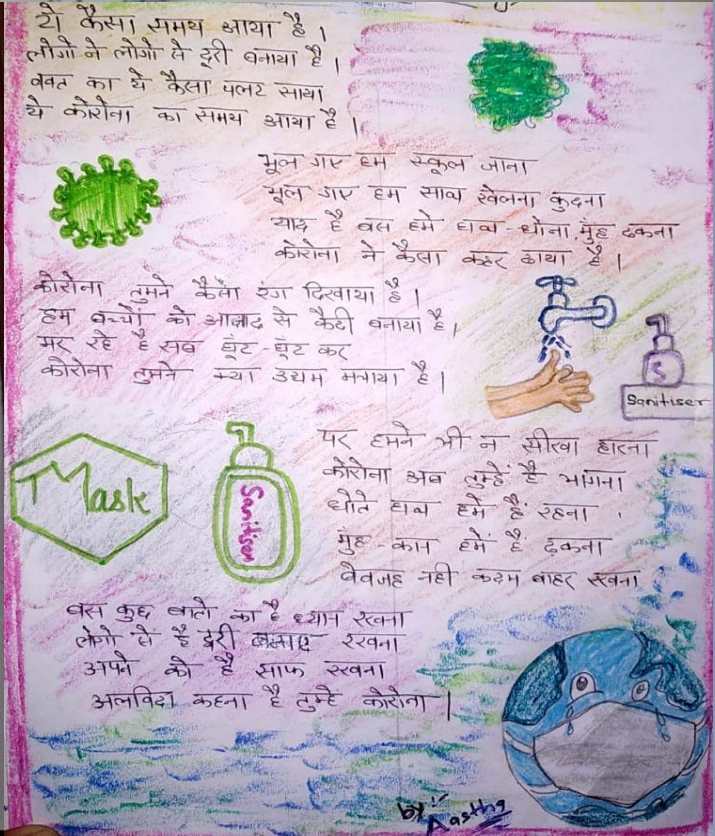 ये कैसा समय आया है ।
लोगो ने लोगो से दूरी बनाया है ।
वक्त का ये कैसा पलट खाया
ये कोरोना का समय आया है ।
भूल गए हम स्कूल जाना
भूल गए हम साथ खेलना कुदना
याद है बस हमे हाथ-धोना मुंह ढकना
कोरोना ने कैसा कहर ढाया है ।
कोरोना तुमने कैसा रंग दिखाया है ।
हम बच्चों को आजाद से कैदी बनाया है ।
मर रहे है सब घूंट-घूंट कर
कोरोना तुमने क्या उधम मचाया है ।
Sanitiser
पर हमने भी न सीखा हारना
कोरोना अब तुम्हें है भागना
धोते हाथ हमे है रहना ।
मुंह-कान हमें है ढ़कना
बेवजह नही कदम बाहर रखना
Mask
Sanitiser
बस कुछ बातो का है ध्यान रखना
लोगो से है दूरी बनाए रखना
अपने को है साफ रखना
अलविदा कहना है तुम्हे कोरोना ।
by:- Aastha